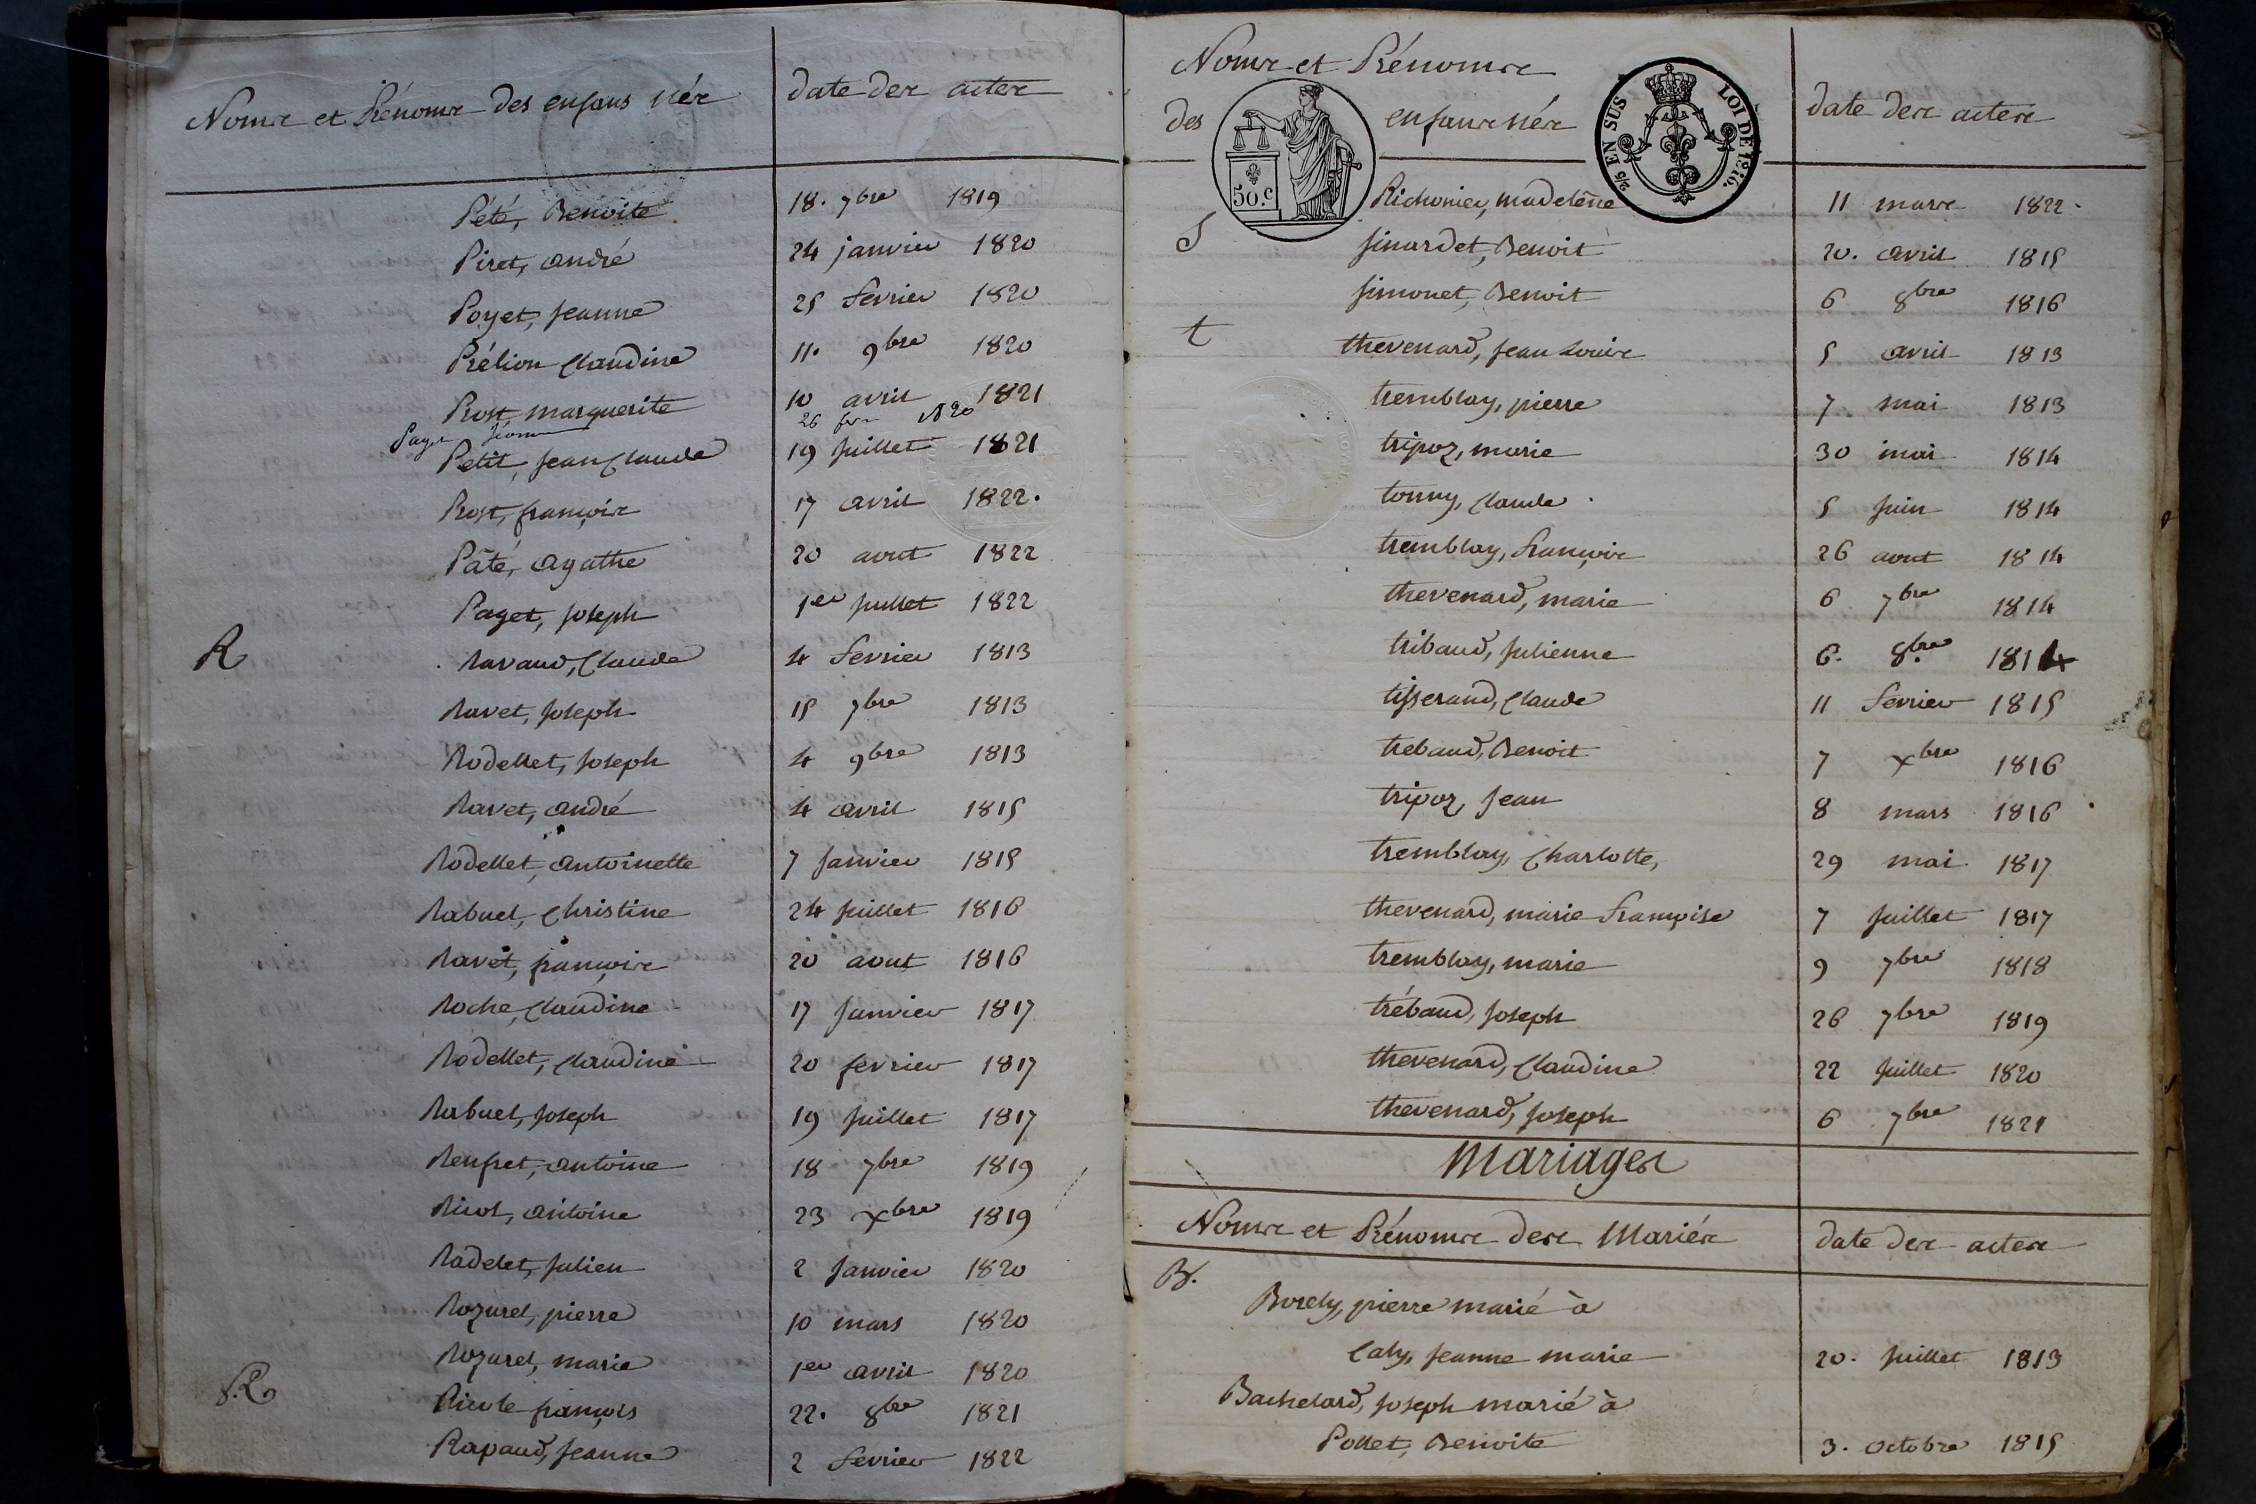 Noms et Prénoms des enfans nés
date des actes
Pété, Benoite 18. 7bre 1819
Piret, andré 24 janvier 1820
Poyet, jeanne 25 fevrier 1820
Prélion Claudine 11. 9bre 1820
Prost, marguerite 10 avril 1821
Paget 26 1820
Petit, jean Claude 19 juillet 1821
Prost, françois 17 avril 1822.
Pâté, agathe 20 aout 1822
Paget, joseph 1er juillet 1822
R
Ravaud, Claude 4 fevrier 1813
Ravet, joseph 15 7bre 1813
Rodellet, joseph 4 9bre 1813
Ravet, andré 4 avril 1815
Rodellet, antoinette 7 janvier 1815
Rabuel, Christine 24 juillet 1816
Ravet, françois 20 aout 1816
Roche, Claudine 17 janvier 1817
Rodellet, Claudine 20 fevrier 1817
Rabuel, joseph 19 juillet 1817
Renfret, antoine 18 7bre 1819
Ricol, antoine 23 Xbre 1819
Radelet, julien 2 janvier 1820
Rozurel, pierre 10 mars 1820
Rozurel, marie 1er avril 1820
R
françois 22. 8bre 1821
Rapaud, jeanne 2 fevrier 1822
Noms et Prénoms
des enfans nés
date des actes
50.c
2/6 EN SUS LOI DE 1816.
Richonier, madelêne 11 mars 1822.
S
Sinardet, Benoit 20. avril 1815
Simonet, Benoit 6 8bre 1816
t
thevenard, jean Louis 5 avril 1813
tremblay, pierre 7 mai 1813
tripoz, marie 30 mai 1814
tonny, Claude 5 juin 1814
tremblay, françois 26 aout 1814
thevenard, marie 6 7bre 1814
tribaud, julienne 6. 8bre 1814
tisserand, Claude 11 fevrier 1815
trebaud, Benoit 7 Xbre 1816
tripoz, jean 8 mars 1816
tremblay, Charlotte, 29 mai 1817
thevenard, marie françoise 7 juillet 1817
tremblay, marie 9 7bre 1818
trébaud, joseph 26 7bre 1819
thevenard, Claudine 22 juillet 1820
thevenard, joseph 6 7bre 1821
Mariages
Noms et Prénoms des Mariés
date des actes
B.
Borely, pierre marié à
Caty, jeanne marie 20. juillet 1813
Bachelard, joseph marié à
Pollet, Benoite 3. octobre 1815